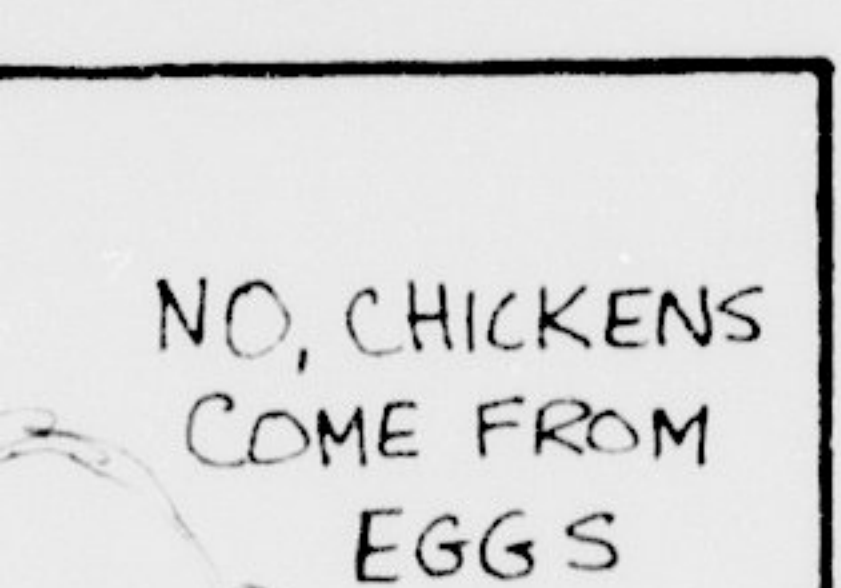 NO, CHICKENS
COME FROM
EGGS